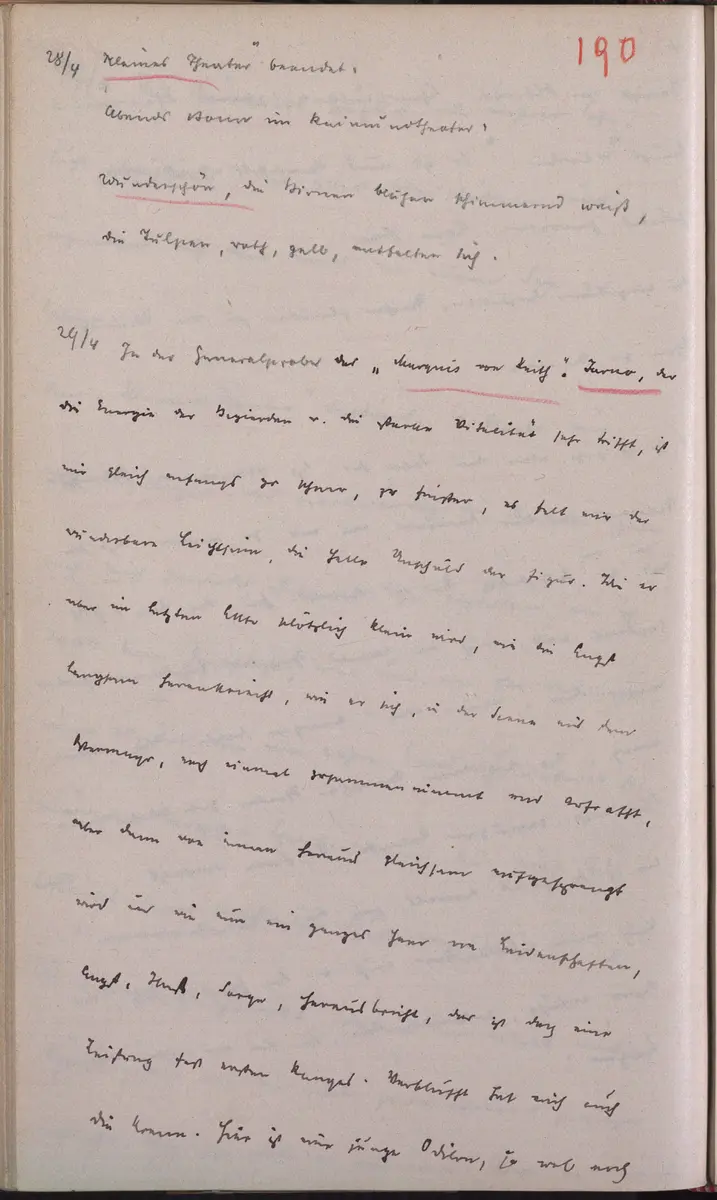 190
28/4 „Kleines Theater" beendet.
Abends Bonn im Raimundtheater.
Wunderschön, die Birnen blühen schimmernd weiß,
die Tulpen, roth, gelb, entfalten sich.
29/4 In der Generalprobe des „Marquis von Keith". Jarno, der
die Energie der Begierden u. die starke Vitalität sehr trifft, ist
mir gleich anfangs zu schwer, zu finster, es felt mir der
wunderbare Leichtsinn, die helle Unschuld der Figur. Wie er
aber im letzten Akte plötzlich klein wird, wie die Angst
langsam herankriecht, wie er sich, in der Scene mit dem
, noch einmal zusammennimmt und aufrafft,
aber dann von innen heraus gleichsam aufgesprengt
wird und wie nun ein ganzes Heer von Leidenschaften,
Angst, Haß, Sorge, herausbricht, das ist doch eine
Leistung fast ersten Ranges. Verblüfft hat mich auch
die . Hier ist eine junge Odilon, ja wol noch